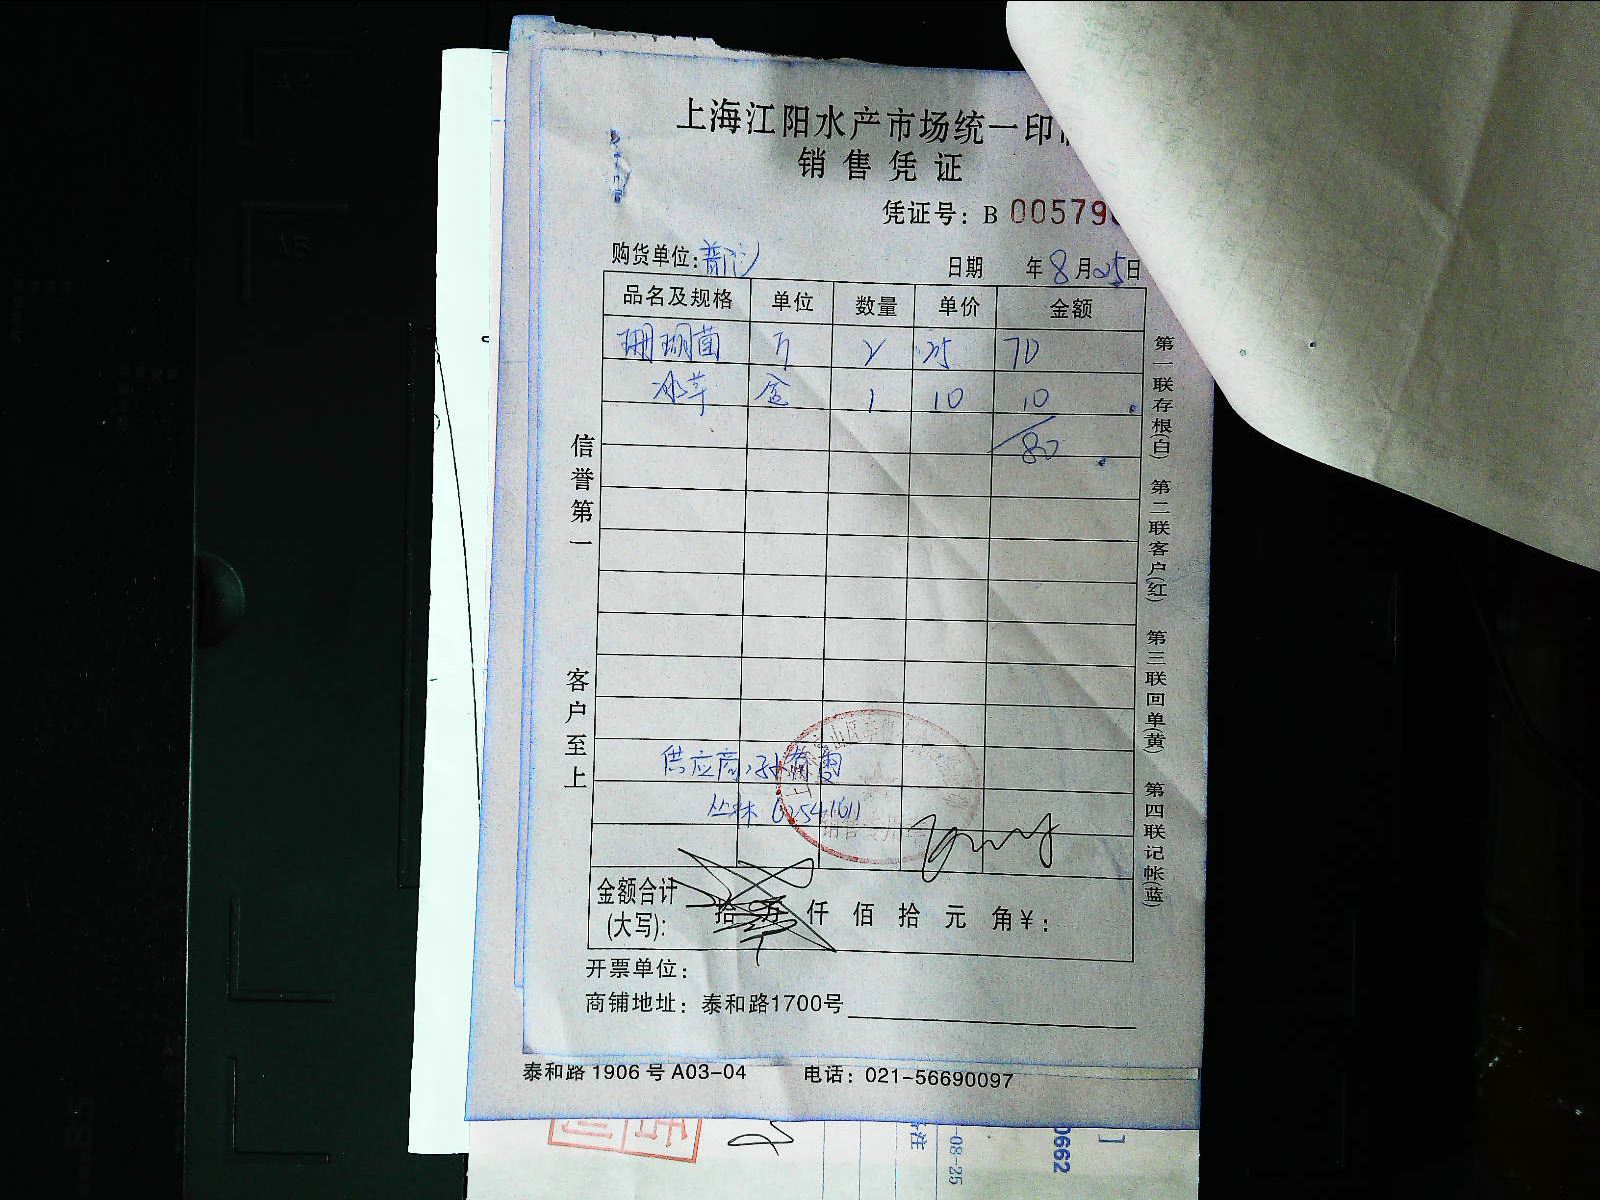 上海江阳水产市场统一印
销售凭证
凭证号：B 00579
购货单位：普陀 日期 年8月25日
品名及规格 单位 数量 单价 金额
珊瑚菌 斤 2 35 70
冰草 盒 1 10 10
80
信誉第一 客户至上
第一联存根(白) 第二联客户(红) 第三联回单(黄) 第四联记帐(蓝)
供应商：
丛林 62541611
销售专用
金额合计
(大写)： 拾 万 仟 佰 拾 元 角￥：
开票单位：
商铺地址：泰和路1700号
泰和路 1906 号 A03-04 电话：021-56690097
-08-25
0662